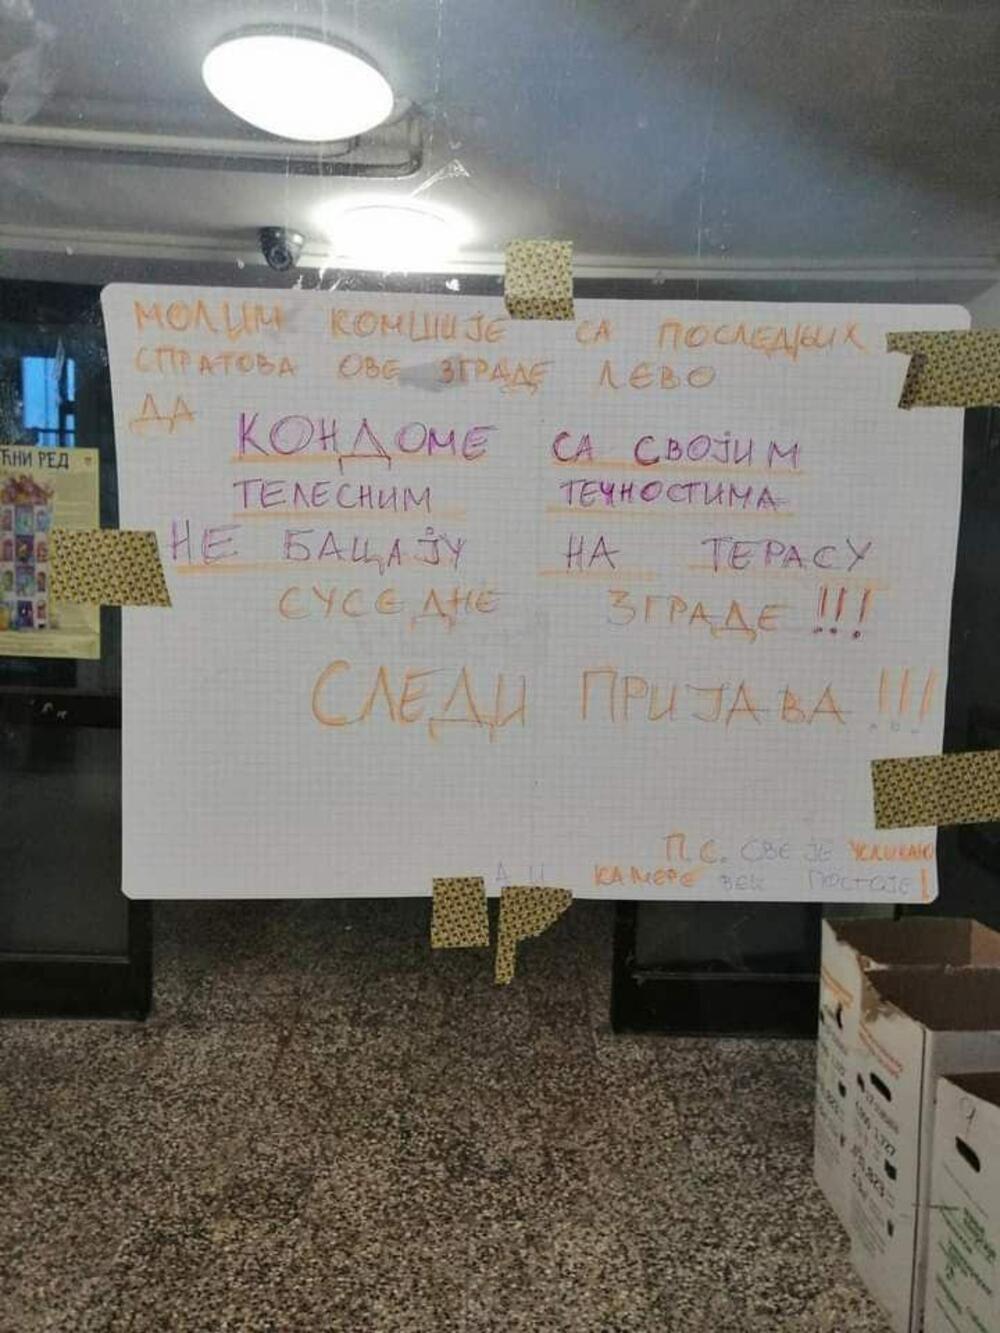 МОЛИМ КОМШИЈЕ СА ПОСЛЕДЊИХ
СПРАТОВА ОВЕ ЗГРАДЕ ЛЕВО
ДА КОНДОМЕ СА СВОЈИМ
ТЕЛЕСНИМ ТЕЧНОСТИМА
НЕ БАЦАЈУ НА ТЕРАСУ
СУСЕДНЕ ЗГРАДЕ !!!
СЛЕДИ ПРИЈАВА !!!
П.С. СВЕ ЈЕ УСЛИКАНО
А И КАМЕРЕ ВЕЋ ПОСТОЈЕ!
ЋНИ РЕД